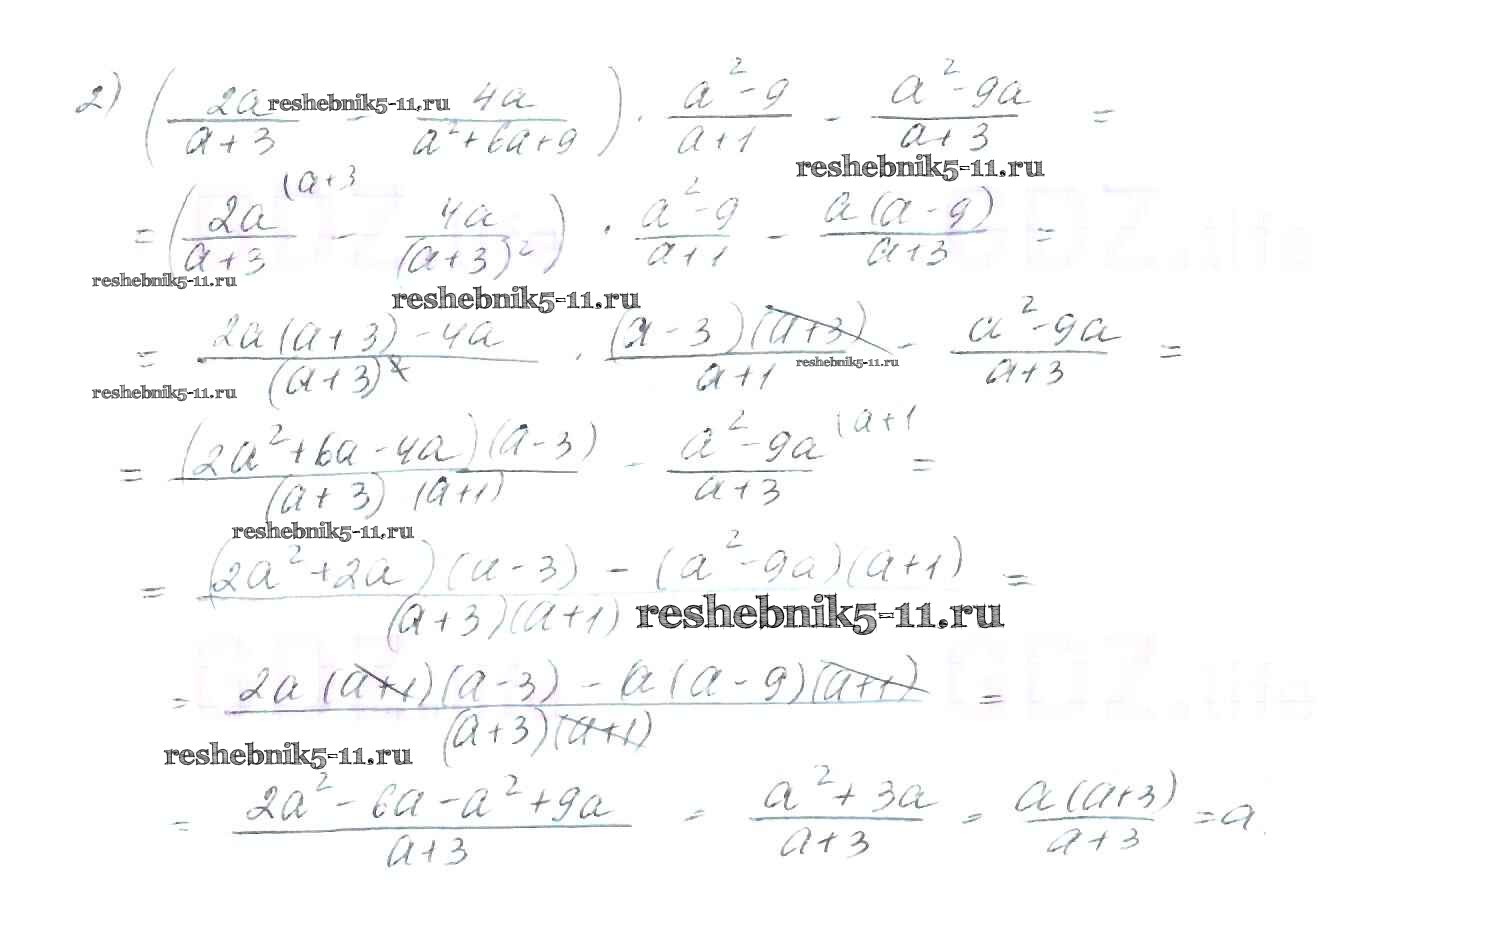 2) ( 2a/(a+3) - 4a/(a²+6a+9) ) · (a²-9)/(a+1) - (a²-9a)/(a+3) =
reshebnik5-11.ru
reshebnik5-11.ru
= ( 2a/(a+3) (a+3 - 4a/(a+3)² ) · (a²-9)/(a+1) - a(a-9)/(a+3) =
reshebnik5-11.ru
reshebnik5-11.ru
= (2a(a+3)-4a)/(a+3)² · (a-3)(a+3)/(a+1) - (a²-9a)/(a+3) =
reshebnik5-11.ru
reshebnik5-11.ru
= (2a²+6a-4a)(a-3)/((a+3)(a+1)) - (a²-9a)/(a+3) (a+1 =
reshebnik5-11.ru
= ((2a²+2a)(a-3) - (a²-9a)(a+1))/((a+3)(a+1)) =
reshebnik5-11.ru
= (2a(a+1)(a-3) - a(a-9)(a+1))/((a+3)(a+1)) =
reshebnik5-11.ru
= (2a²-6a-a²+9a)/(a+3) = (a²+3a)/(a+3) = a(a+3)/(a+3) = a.